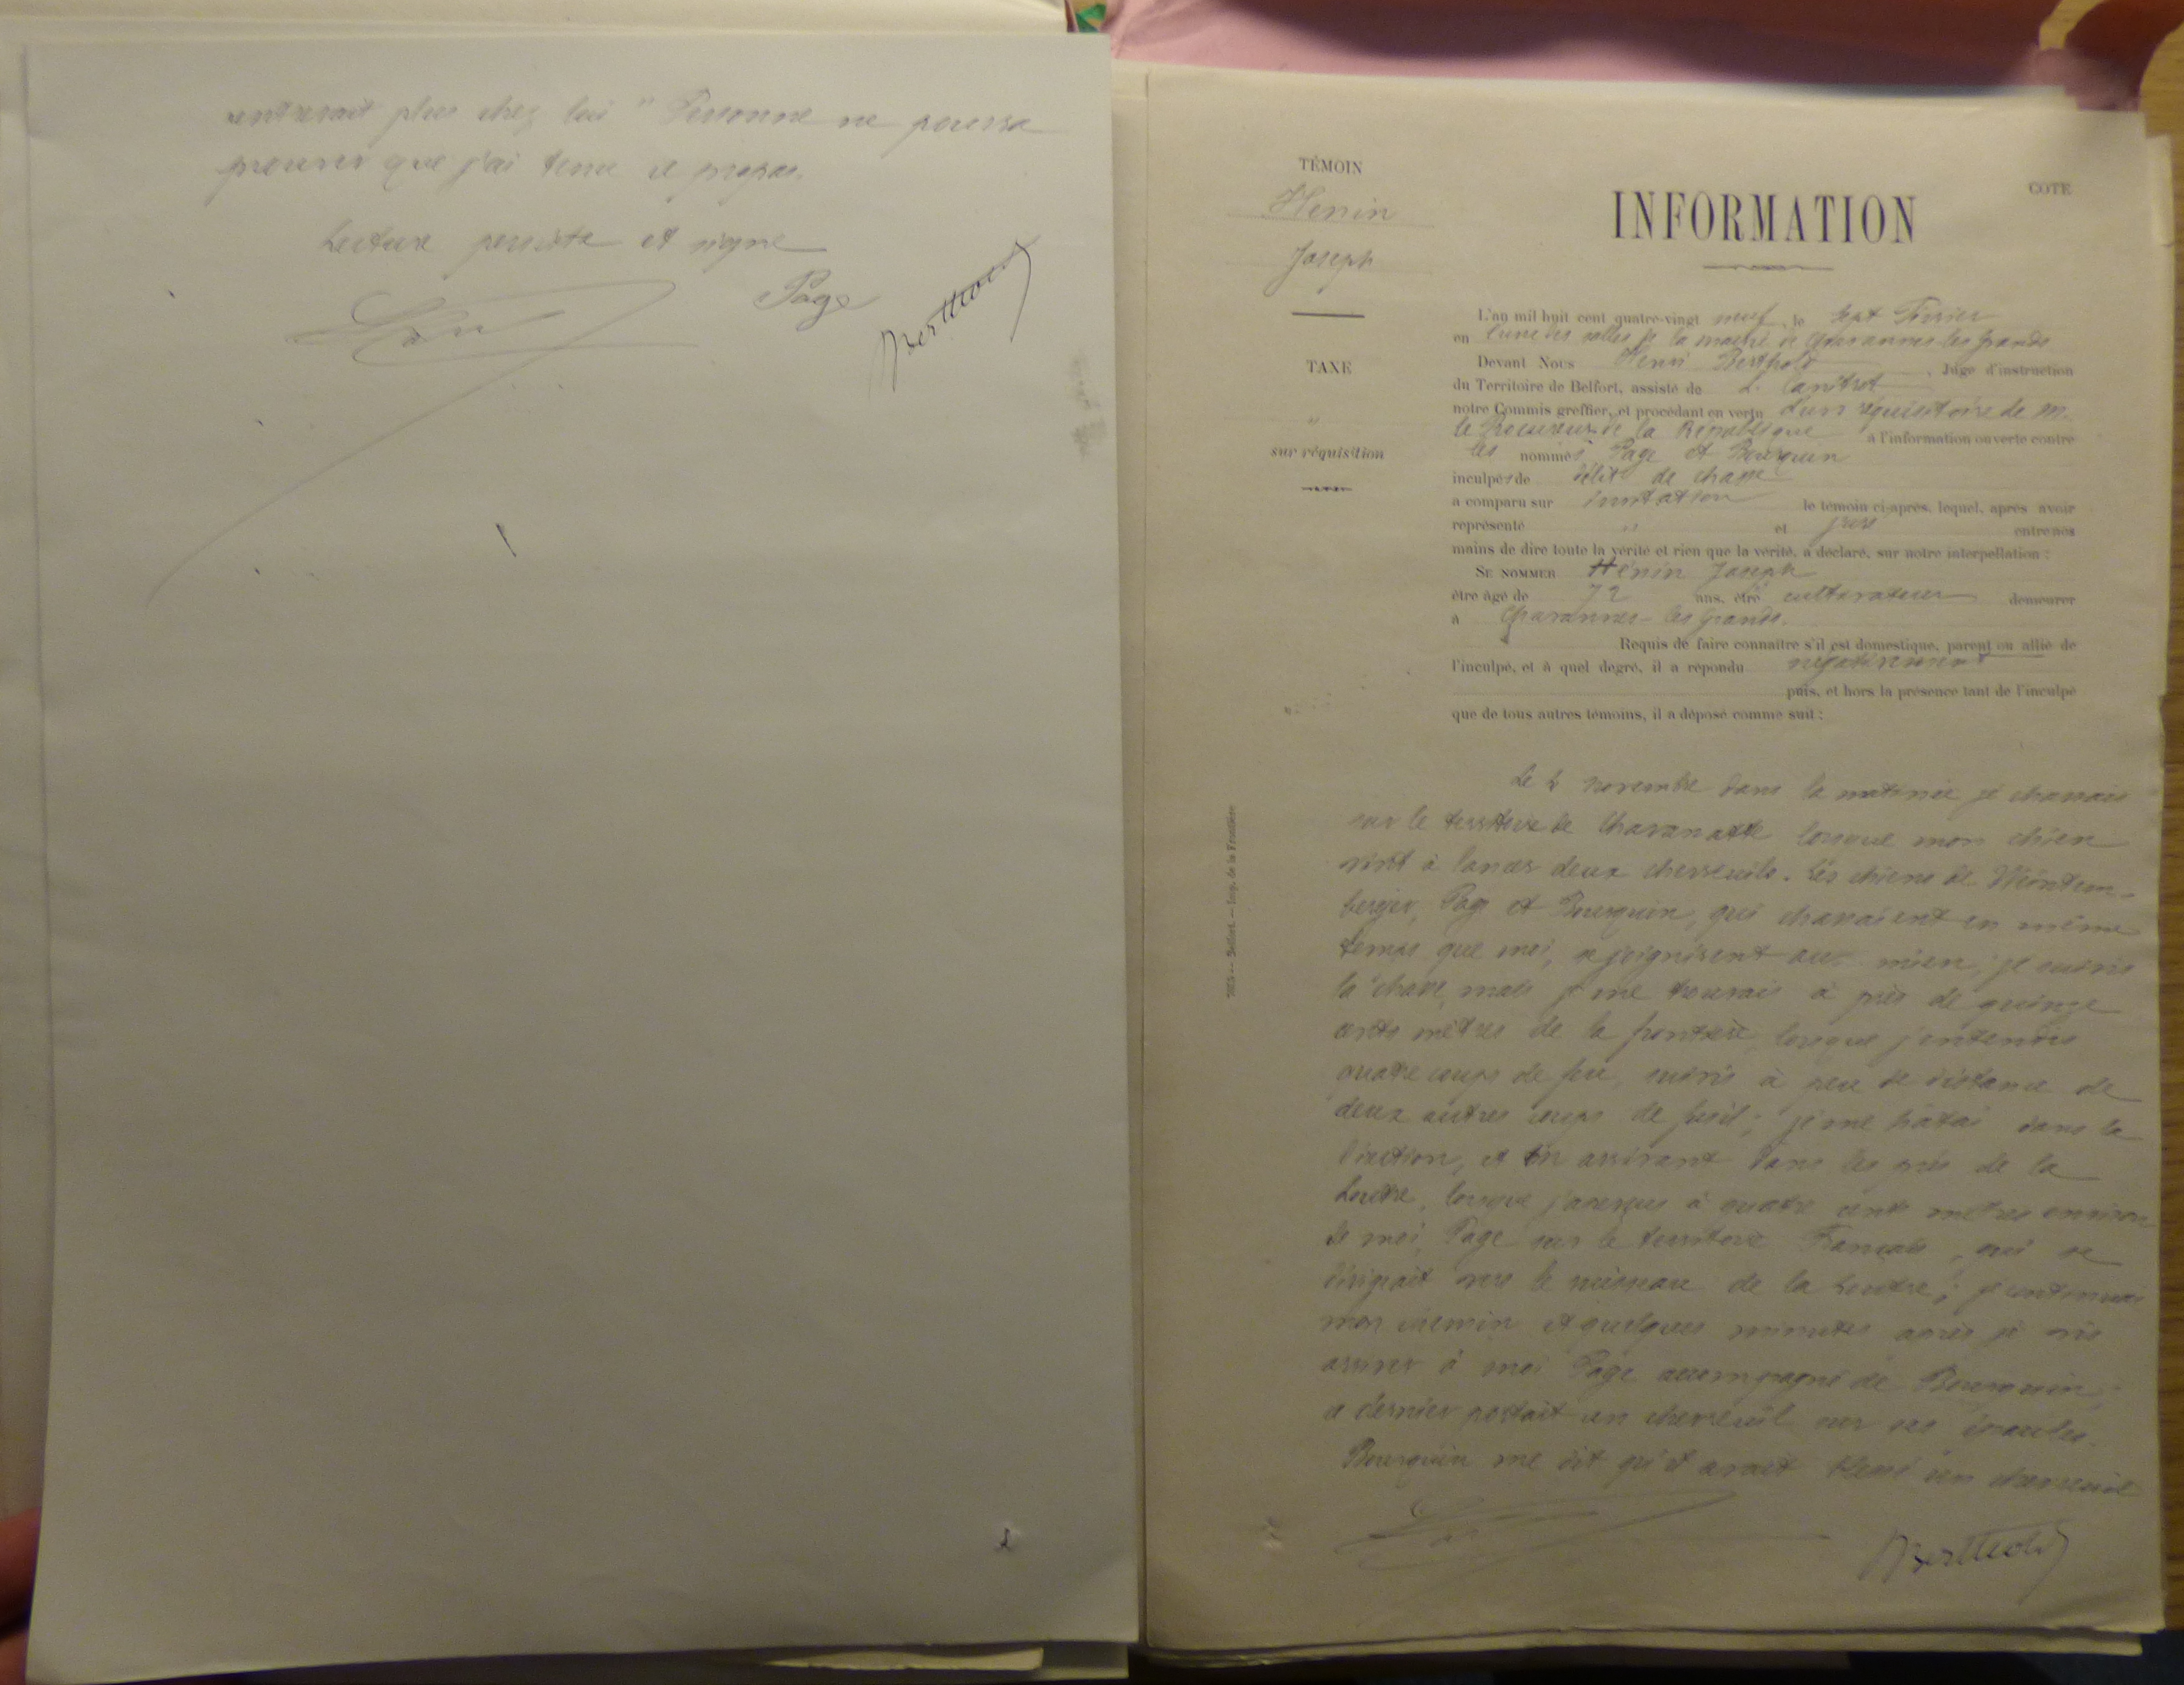 rentrerait plus chez lui " Personne ne pourra
prouver que j'ai tenu ce propos.
Lecture persiste et signe
Page
Berthold
TÉMOIN
Henin
Joseph
TAXE
"
sur réquisition
COTE
INFORMATION
L'an mil huit cent quatre-vingt neuf, le sept Février
en l'une des salles de la mairie de Chavannes les grands
Devant Nous Henri Berthold, Juge d'instruction
du Territoire de Belfort, assisté de L. Canitrot
notre Commis greffier, et procédant en vertu d'un réquisitoire de M.
le Procureur de la République à l'information ouverte contre
les nommés Page et Bourquin
inculpés de délit de chasse
a comparu sur invitation le témoin ci-après, lequel, après avoir
représenté " et juré entre nos
mains de dire toute la vérité et rien que la vérité, a déclaré, sur notre interpellation :
SE NOMMER Hénin Joseph
être âgé de 72 ans, être cultivateur demeurer
à Chavannes-les grands.
Requis de faire connaître s'il est domestique, parent ou allié de
l'inculpé, et à quel degré, il a répondu négativement
puis, et hors la présence tant de l'inculpé
que de tous autres témoins, il a déposé comme suit :
Le 2 novembre dans la matinée je chassais
sur le territoire de Chavanatte lorsque mon chien
vint à lancer deux chevreuils. Les chiens de
Page et Bourquin, qui chassaient en même
temps que moi, se joignirent au mien, je suivis
la chasse mais je me trouvais à près de quinze
cents mètres de la frontière lorsque j'entendis
quatre coups de feu, suivis à peu de distance de
deux autres coups de fusil ; je me hâtai dans la
direction, et en arrivant dans les prés de la
Loutre, lorsque j'aperçus à quatre cents mètres environ
de moi, Page sur le territoire Français, qui se
dirigeait vers le ruisseau de la Loutre ; je continuai
mon chemin et quelques minutes après je vis
arriver à moi Page accompagné de Bourquin,
ce dernier portait un chevreuil sur ses épaules.
Bourquin me dit qu'il avait blessé un chevreuil
Berthold
Belfort. — Imp. de la Frontière